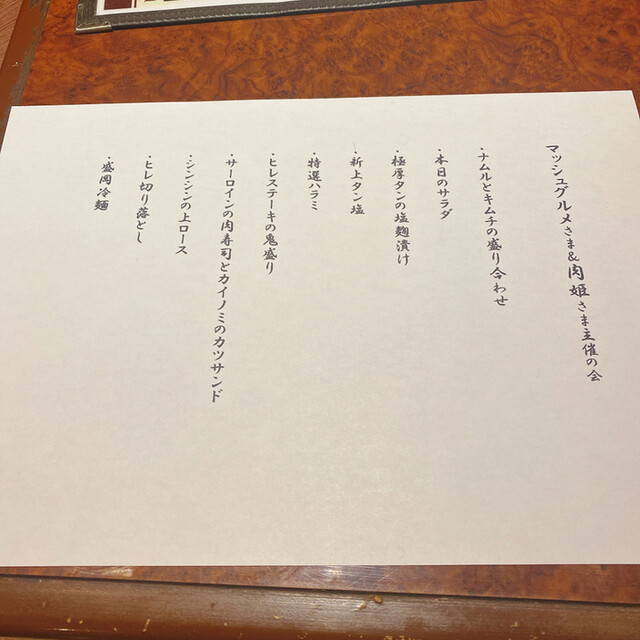 マッシュグルメさま&肉姫さま主催の会
・ナムルとキムチの盛り合わせ
・本日のサラダ
・極厚タンの塩麹漬け
・新上タン塩
・特選ハラミ
・ヒレステーキの鬼盛り
・サーロインの肉寿司とカイノミのカツサンド
・シンシンの上ロース
・ヒレ切り落とし
・盛岡冷麺